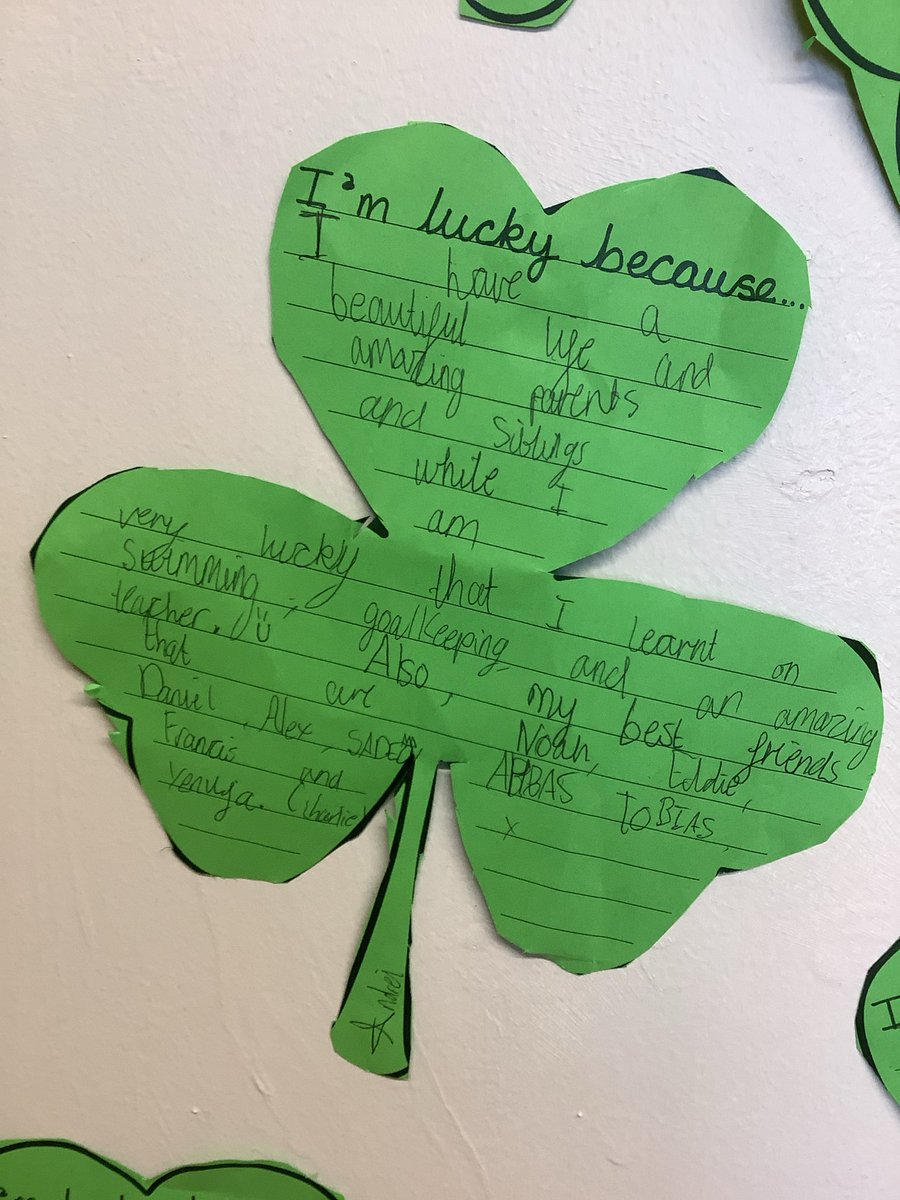 I'm lucky because...
I have a
beautiful life and
amazing parents
and siblings
while I
am
very lucky that I learnt on
swimming, goalkeeping and an amazing
teacher. Also, my best friends
that are Noah, Eddie,
Daniel, Alex, ABBAS TOBIAS,
Francis and x
Yenuga. (Charlie)
Andrei
I